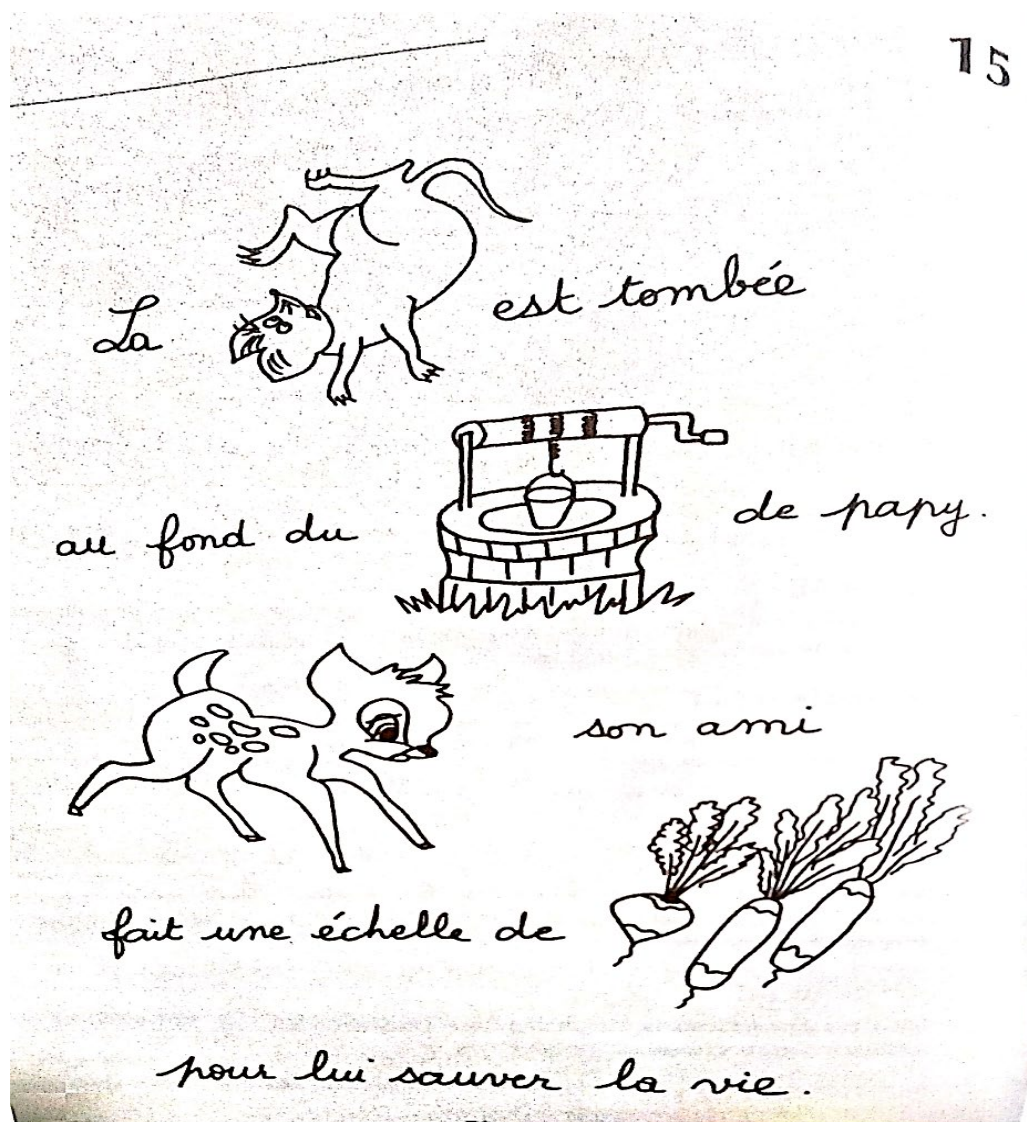 15
La est tombée
au fond du de papy.
son ami
fait une échelle de
pour lui sauver la vie.